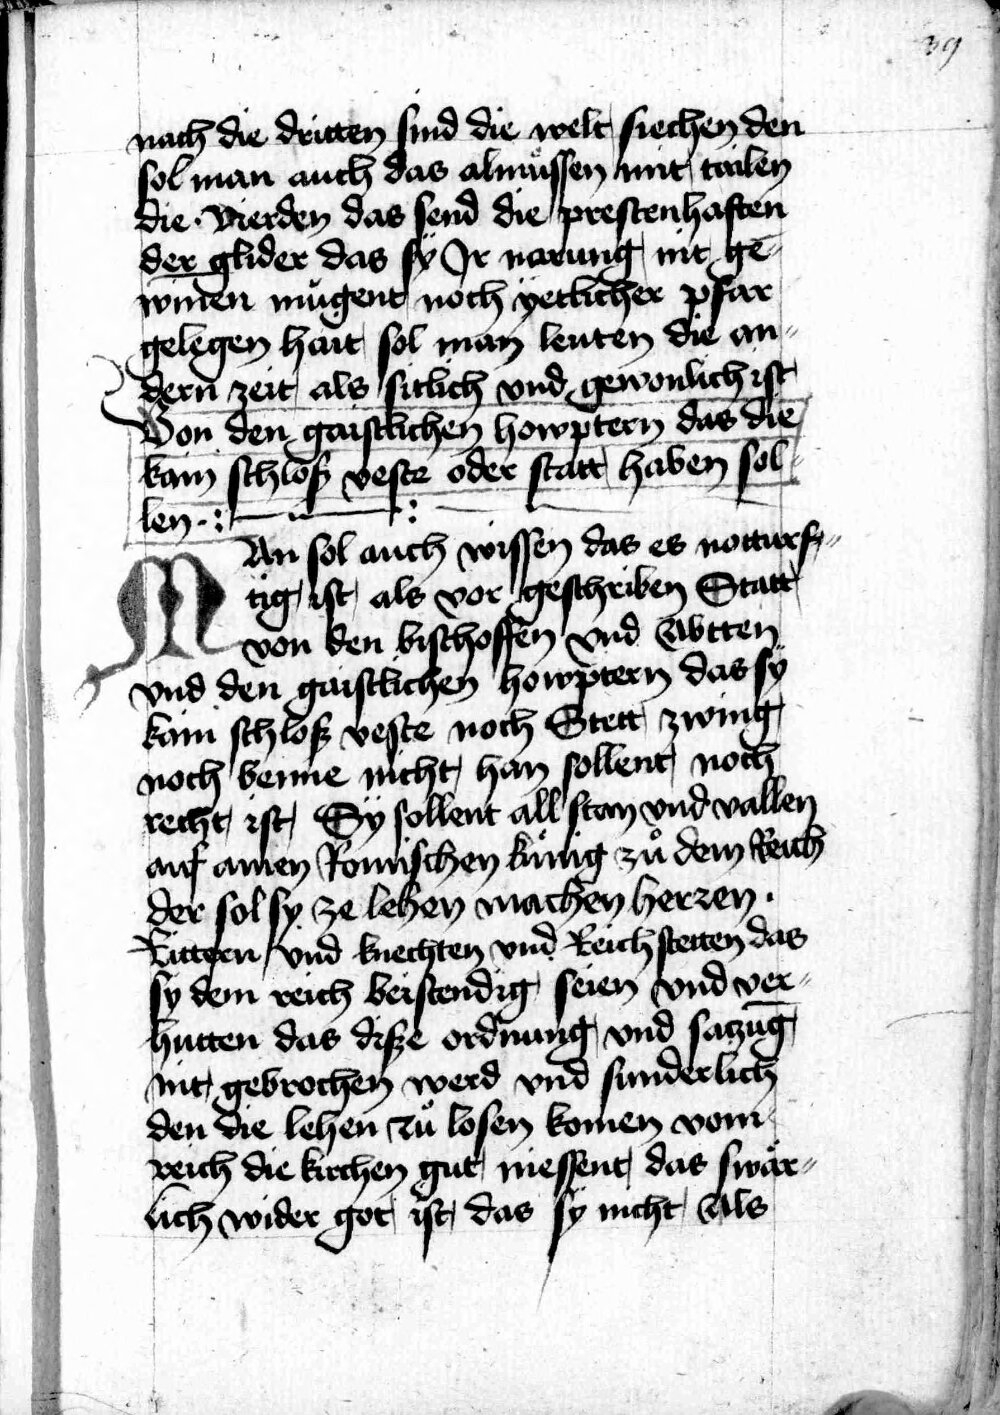 39
nach die dritten sind die welt siechen den
sol man auch das almůssen mit tailen
die · Vierden das send die prestenhaften
der glider das sÿ Jr narung nit ge-
winen můgent noch ÿetlicher pfar
gelegen hait sol man leuten die an-
dern zeit als sitlich vnd gewonlich ist
Von den gaistlichen howptern das die
kain schloß veste oder statt haben sol-
len ·:
MAn sol auch wissen das es notturf-
tig ist als vor geschriben Statt
von den bischoffen vnd Abtten
vnd den gaistlichen howptern das sÿ
kain schloß veste noch Stett zwing
noch benne nicht han sollent noch
recht ist Sÿ sollent all stan vnd vallen
auf ainen Romischen kůnig zů dem Reich
der sol sy ze lehen machen herren ·
Rittern vnd knechten vnd Reichstetten das
sy dem reich beistendig seien vnd ver-
hutten das diße ordnung vnd satzūg
nit gebrochen werd vnd sunderlich
den die lehen zů losen komen vom
reich die kirchen gut niessent das swär-
lich wider got ist das sy nicht Als